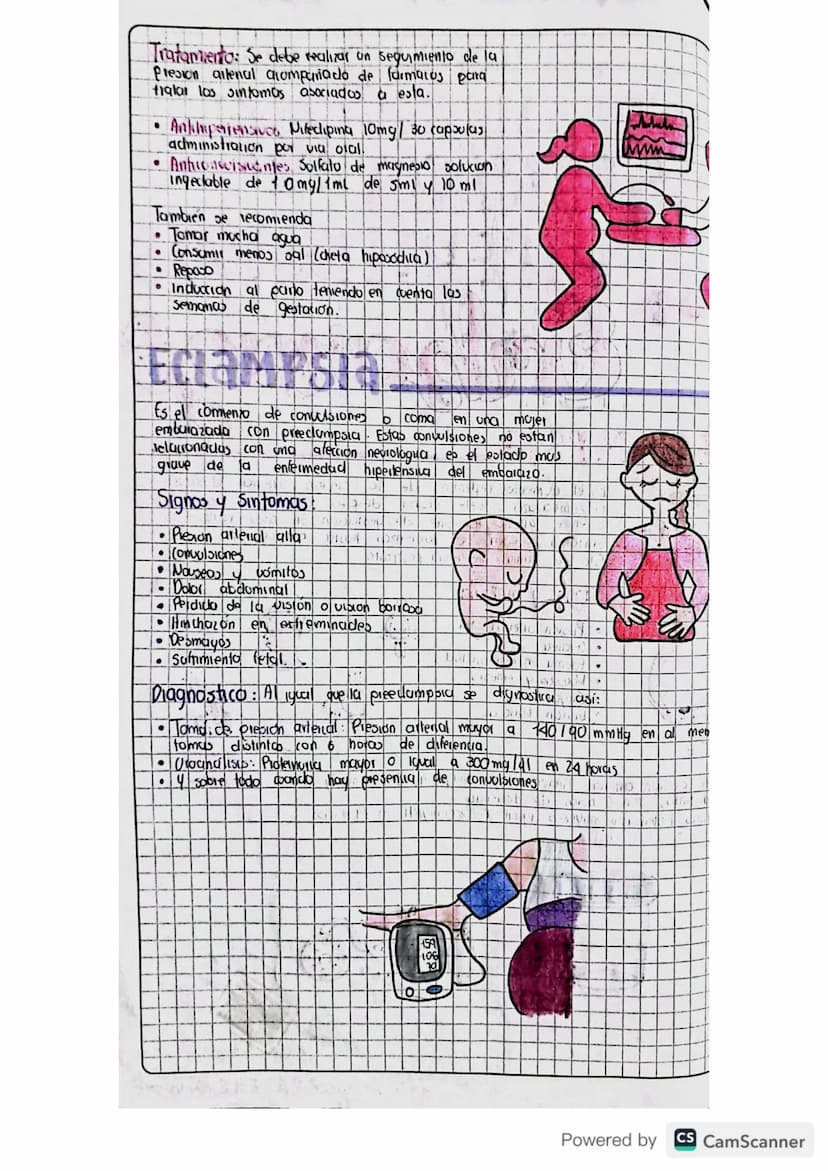 Tratamiento: Se debe realizar un seguimiento de la
Presion arterial acompañado de farmacos para
tratar los sintomas asociados a esta.
• Antihipertensivos Nifedipina 10mg/ 30 capsulas
administracion por via oral.
• Anticonvulsivantes Sulfato de magnesio solucion
inyectable de 10mg/1ml de 5ml y 10 ml
Tambien se recomienda
• Tomar mucha agua
• Consumir menos sal (dieta hiposodica)
• Reposo
• Induccion al parto teniendo en cuenta las
semanas de gestacion.
Eclampsia
Es el comienzo de convulsiones o coma en una mujer
embarazada con preeclampsia. Estas convulsiones no estan
relacionadas con una afección neurologica, es el estado mas
grave de la enfermedad hipertensiva del embarazo.
Signos y Sintomas:
• Presion arterial alta
• Convulsiones
• Nauseas y vómitos
• Dolor abdominal
• Perdida de la visión o vision borrosa
• Hinchazón en extreminades
• Desmayos
• Sufrimiento fetal.
Diagnostico: Al igual que la preeclampsia se dignostica así:
• Toma de presion arterial: Presion arterial mayor a 140/90 mmHg en al men
tomas distintas con 6 horas de diferencia.
• Uroanalisis: Proteinuria mayor o igual a 300mg/dl en 24 horas
• Y sobre todo cuando hay presencia de convulsiones
159
106
70
Powered by CS CamScanner